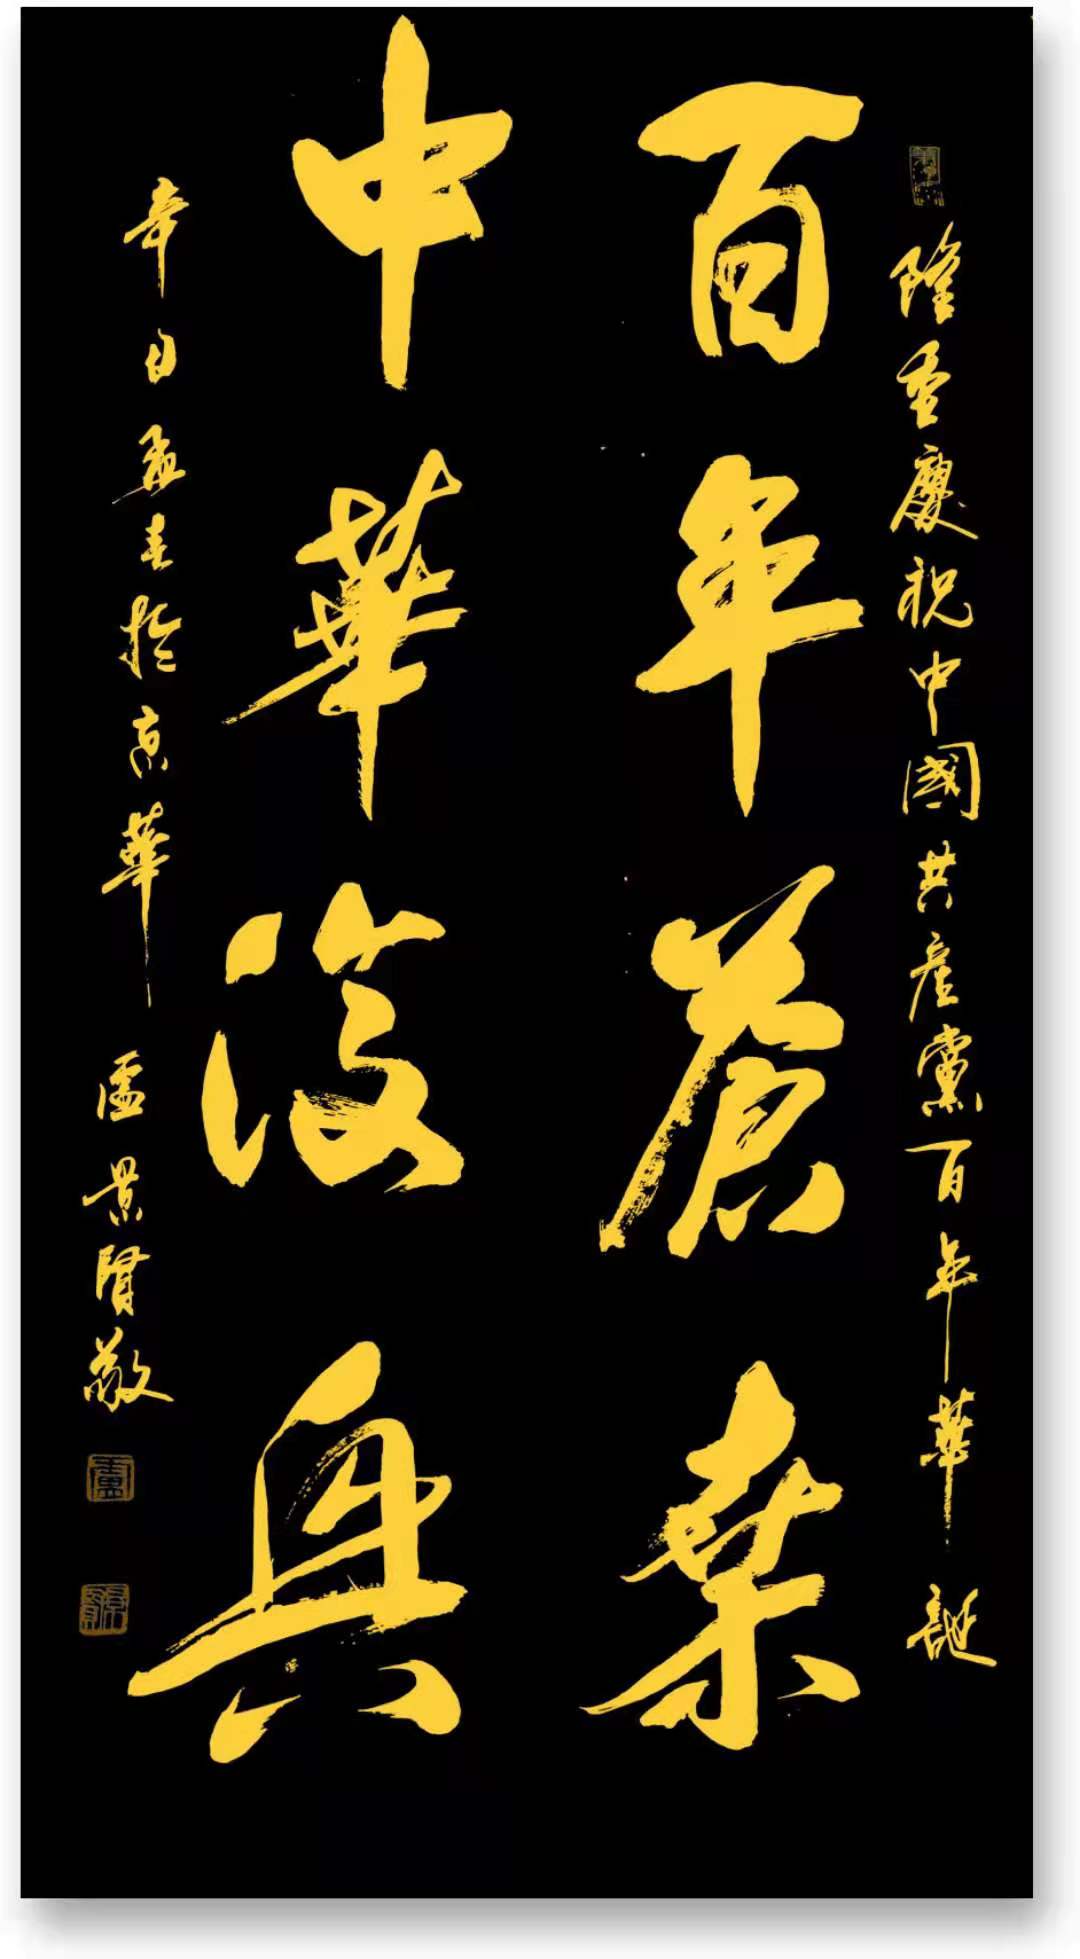 隆重慶祝中國共產黨百年華誕
百年蒼桒
中華復興
辛丑孟春於京華 盧景賢敬
盧